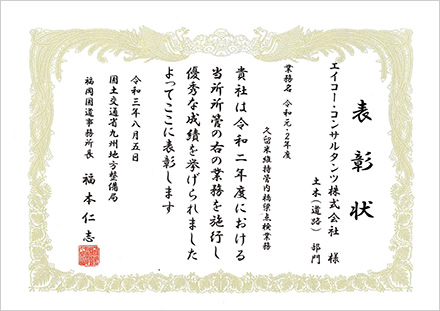 表彰状
エイコー・コンサルタンツ株式会社 様
土木(道路)部門
業務名 令和元・2年度
久留米維持管内橋梁点検業務
貴社は令和二年度における
当所所管の右の業務を施行し
優秀な成績を挙げられました
よってここに表彰します
令和三年八月五日
国土交通省九州地方整備局
福岡国道事務所長 福本仁志